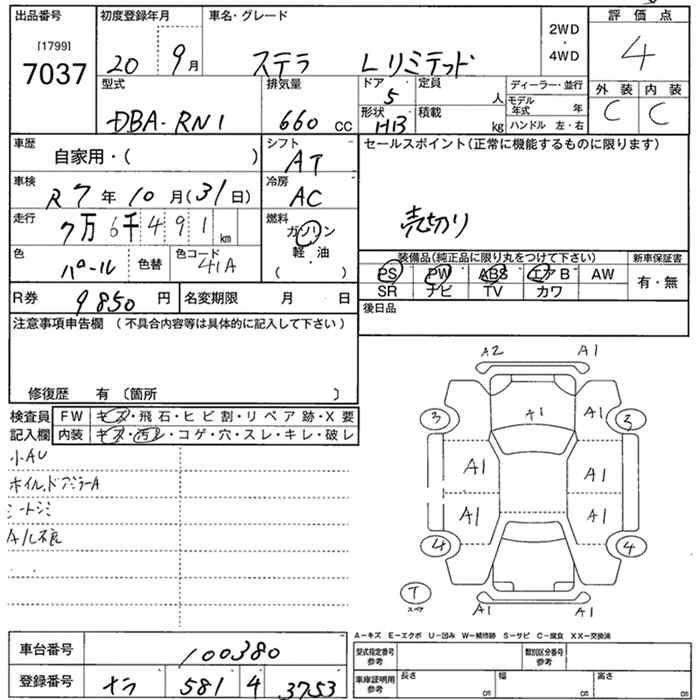 出品番号 初度登録年月 車名・グレード 評価点
[1799] 7037
20 9月 ステラ Lリミテッド 2WD ・ 4WD 4
型式 排気量 ドア 5 定員 人 ディーラー・並行 外装 内装
DBA-RN1 660 cc 形状 HB 積載 kg モデル年式 年 C C
ハンドル 左・右
車歴 自家用・( ) シフト AT セールスポイント(正常に機能するものに限ります)
車検 R7年10月(31日) 冷房 AC
売切り
走行 7万6千491km 燃料 ガソリン 軽油 ( )
色 パール 色替 色コード 41A
装備品(純正品に限り丸をつけて下さい) 新車保証書
PS PW ABS エアB AW 有・無
SR ナビ TV カワ
R券 9850円 名変期限 月 日 後日品
注意事項申告欄 (不具合内容等は具体的に記入して下さい)
修復歴 有 〔箇所 〕
検査員 FW キズ・飛石・ヒビ割・リペア跡・X要
記入欄 内装 キズ・汚レ・コゲ・穴・スレ・キレ・破レ
小AU
ホイル,ドアミラーA
シートシミ
A/C不良
A2 A1
A1 A1
3 3
A1 A1
A1 A1
4 4
T
スペア
A1 A1
A-キズ E-エクボ U-凹み W-補修跡 S-サビ C-腐食 XX-交換済
車台番号 100380 型式指定番号 参考 類別区分番号 参考
登録番号 ナラ 581 4 3753 車庫証明用 参考 長さ cm 幅 cm 高さ cm